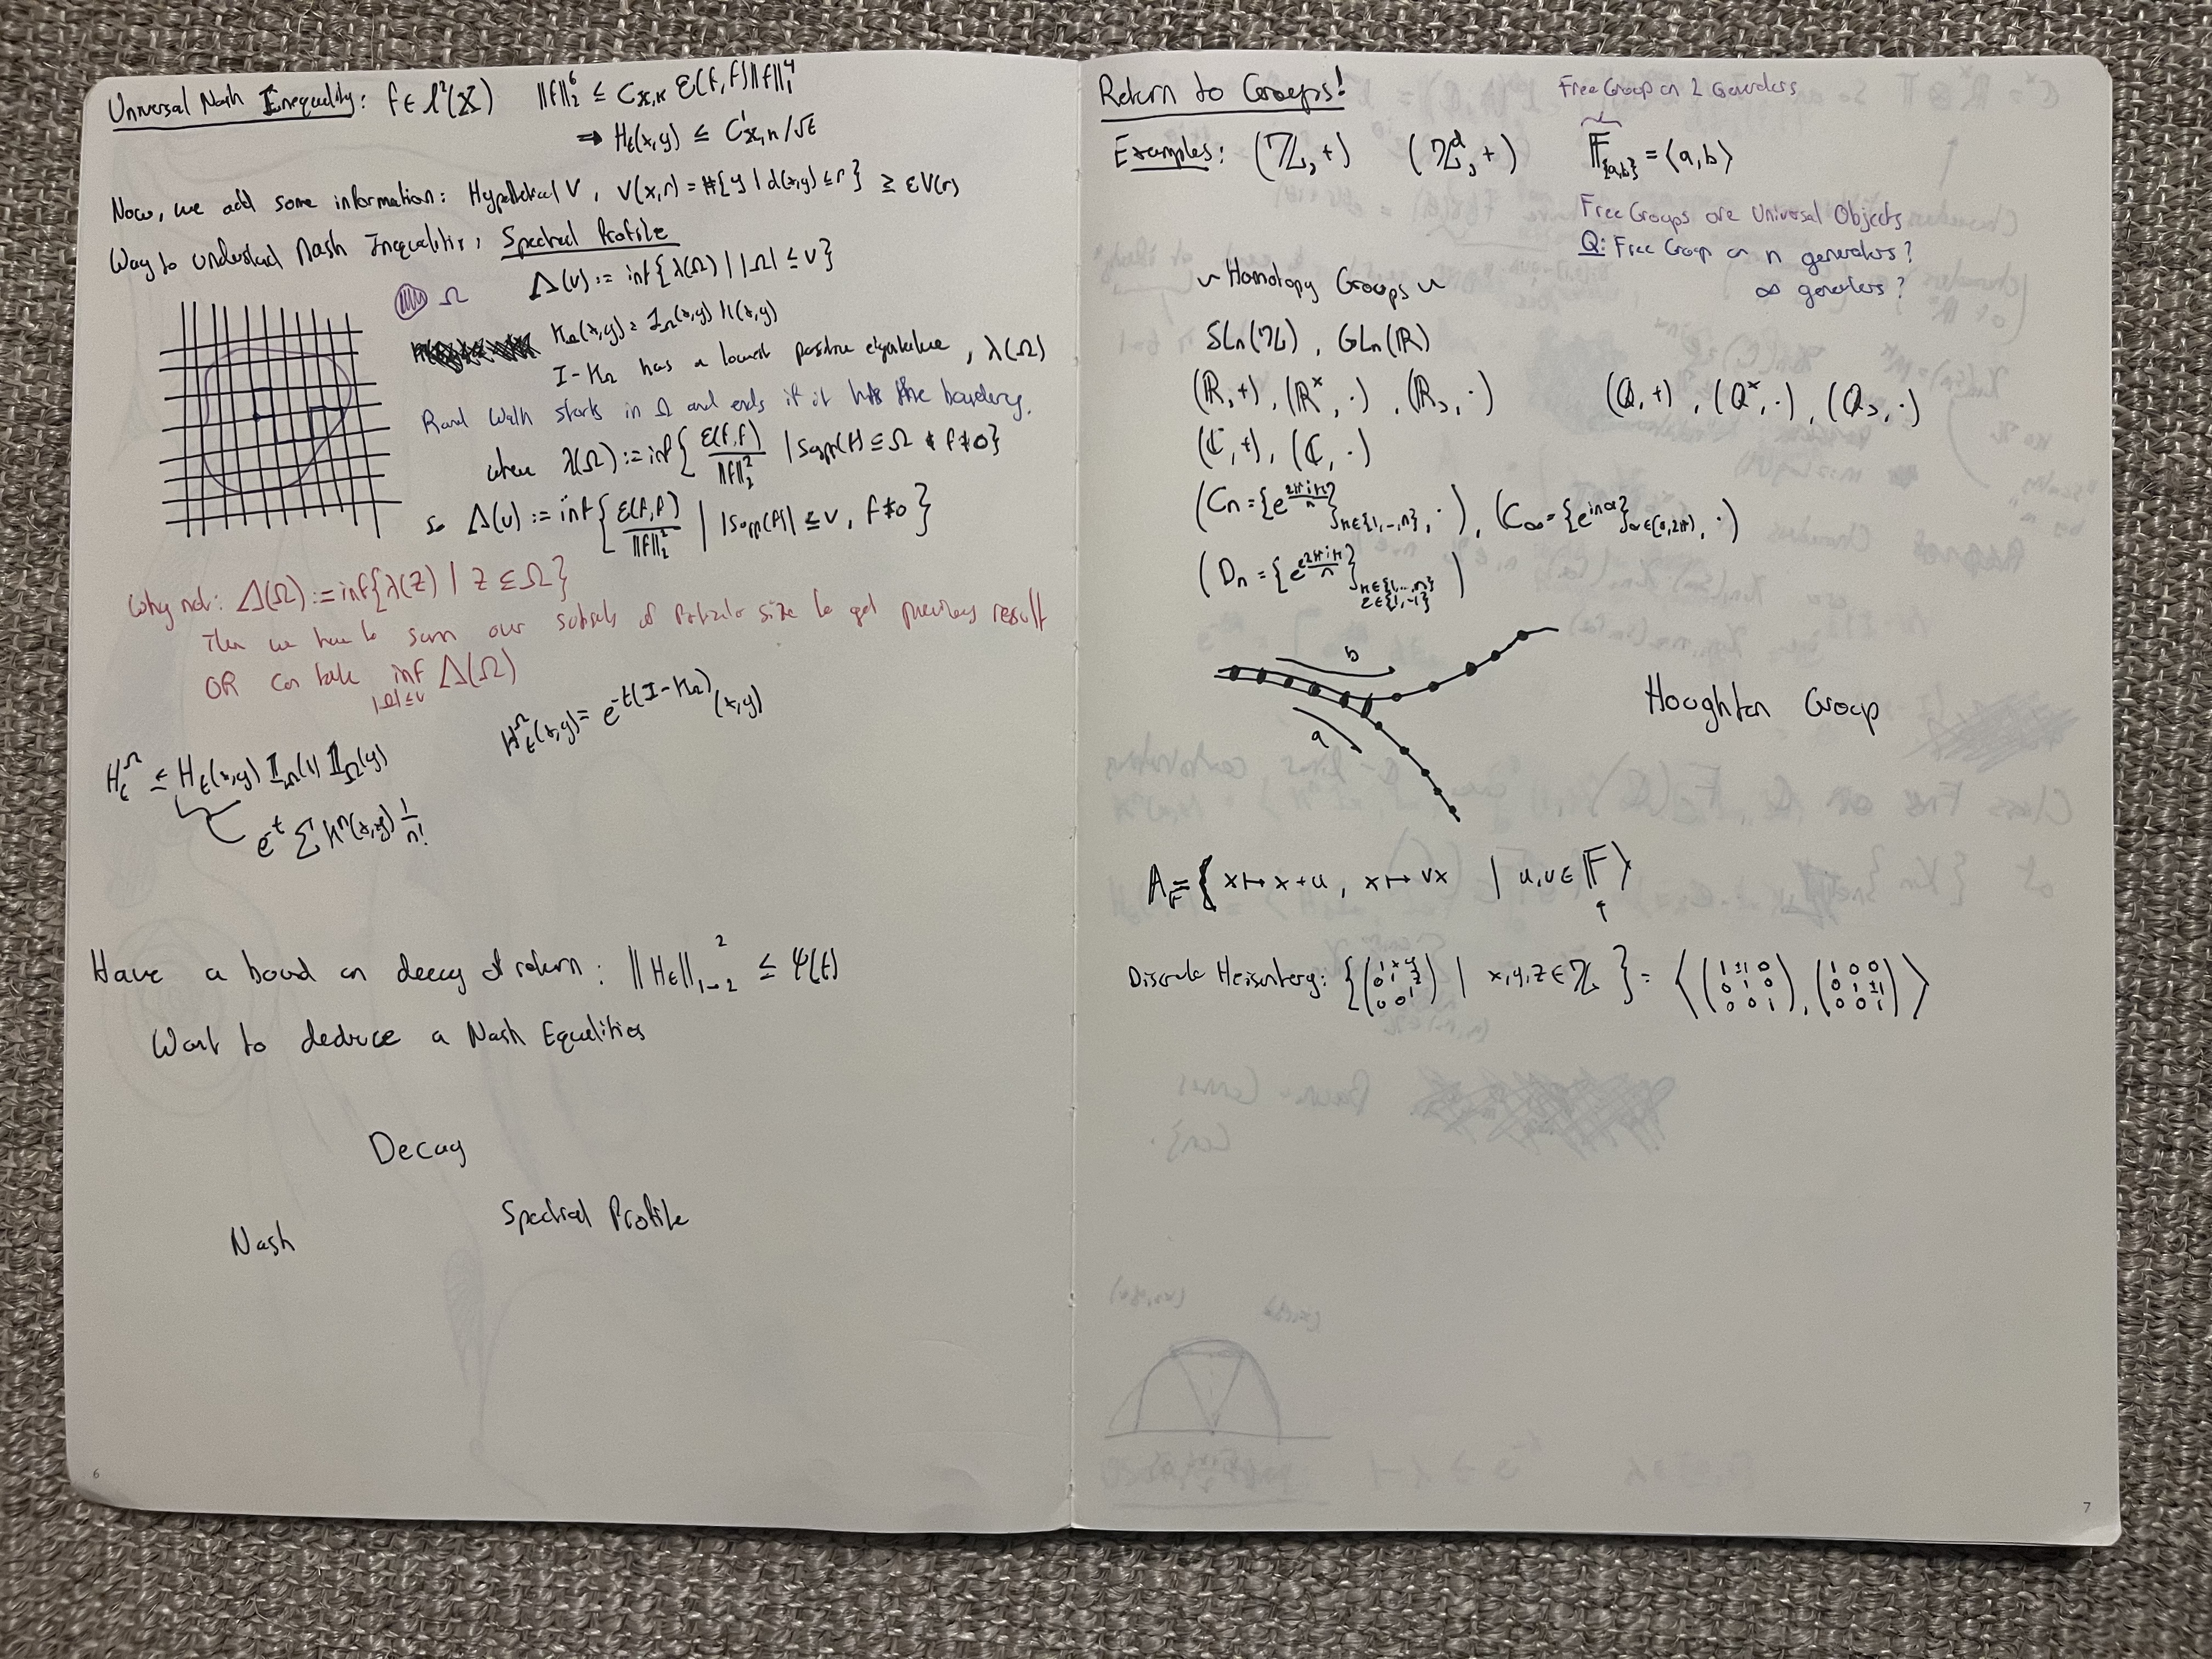 Universal Nash Inequality: f ∈ ℓ²(X) ‖f‖₂⁶ ≤ Cx,κ ℰ(f,f)‖f‖₁⁴
⇒ Hₜ(x,y) ≤ C'x,κ/√t
Now, we add some information: Hypothetical V, V(x,r) = #{y | d(x,y) ≤ r} ≥ εV(r)
Way to understand Nash Inequalities, Spectral Profile
Λ(v) := inf{λ(Ω) | |Ω| ≤ v}
Ω
K_Ω(x,y) = 1_Ω(x,y) K(x,y)
I-K_Ω has a lowest positive eigenvalue, λ(Ω)
Rand walk starts in Ω and ends if it hits the boundary.
where λ(Ω) := inf{ℰ(f,f)/‖f‖₂² | supp(f) ⊆ Ω & f≠0}
so Λ(v) := inf{ℰ(f,f)/‖f‖₂² | |supp(f)| ≤ v, f≠0}
Why not: Λ(Ω) := inf{λ(Z) | Z ⊆ Ω}
Then we have to sum over subsets of particular size to get previous result
OR can take inf_{|Ω|≤v} Λ(Ω)
Hₜ^Ω(x,y) = e^{-t(I-K_Ω)}(x,y)
Hₜ^Ω ≤ Hₜ(x,y) 1_Ω(x) 1_Ω(y)
e^{-t} Σ Kⁿ(x,y) 1/n!
Have a bound on decay of return: ‖Hₜ‖²₁→₂ ≤ Ψ(t)
Want to deduce a Nash Equalities
Decay
Nash
Spectral Profile
6
Return to Groups!
Free Group on 2 Generators
Examples: (ℤ, +) (ℤᵈ, +) 𝔽_{a,b} = ⟨a,b⟩
Free Groups are Universal Objects
Q: Free Group on n generators?
∞ generators?
~ Homology Groups ~
SLn(ℤ), GLn(ℝ)
(ℝ,+), (ℝˣ, ·), (ℝ>, ·) (ℚ,+), (ℚˣ, ·), (ℚ>, ·)
(ℂ,+), (ℂ, ·)
(Cn = {e^{2πik/n}}_{k∈{1,-,n}}, ·), (C∞ = {e^{inα}}_{α∈(0,2π)}, ·)
(Dn = {e^{ε2πik/n}}_{k∈{1,...,n} ε∈{1,-1}} )
b
a
Houghton Group
A_𝔽 = {x ↦ x+u, x ↦ vx | u,v ∈ 𝔽}
Discrete Heisenberg: {(1 x y; 0 1 z; 0 0 1) | x,y,z ∈ ℤ} = ⟨(1 ±1 0; 0 1 0; 0 0 1), (1 0 0; 0 1 ±1; 0 0 1)⟩
7